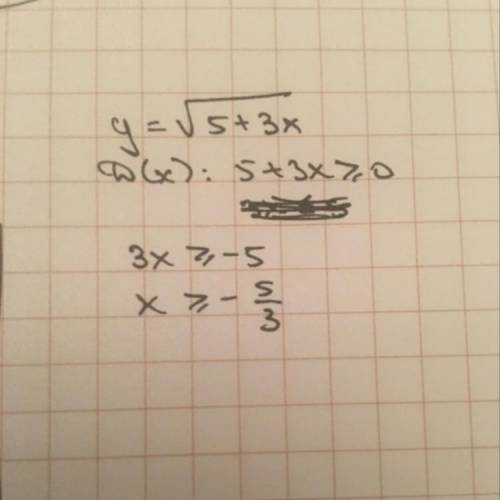 y = √5 + 3x
D(x): 5 + 3x ⩾ 0
3x ⩾ -5
x ⩾ - 5/3